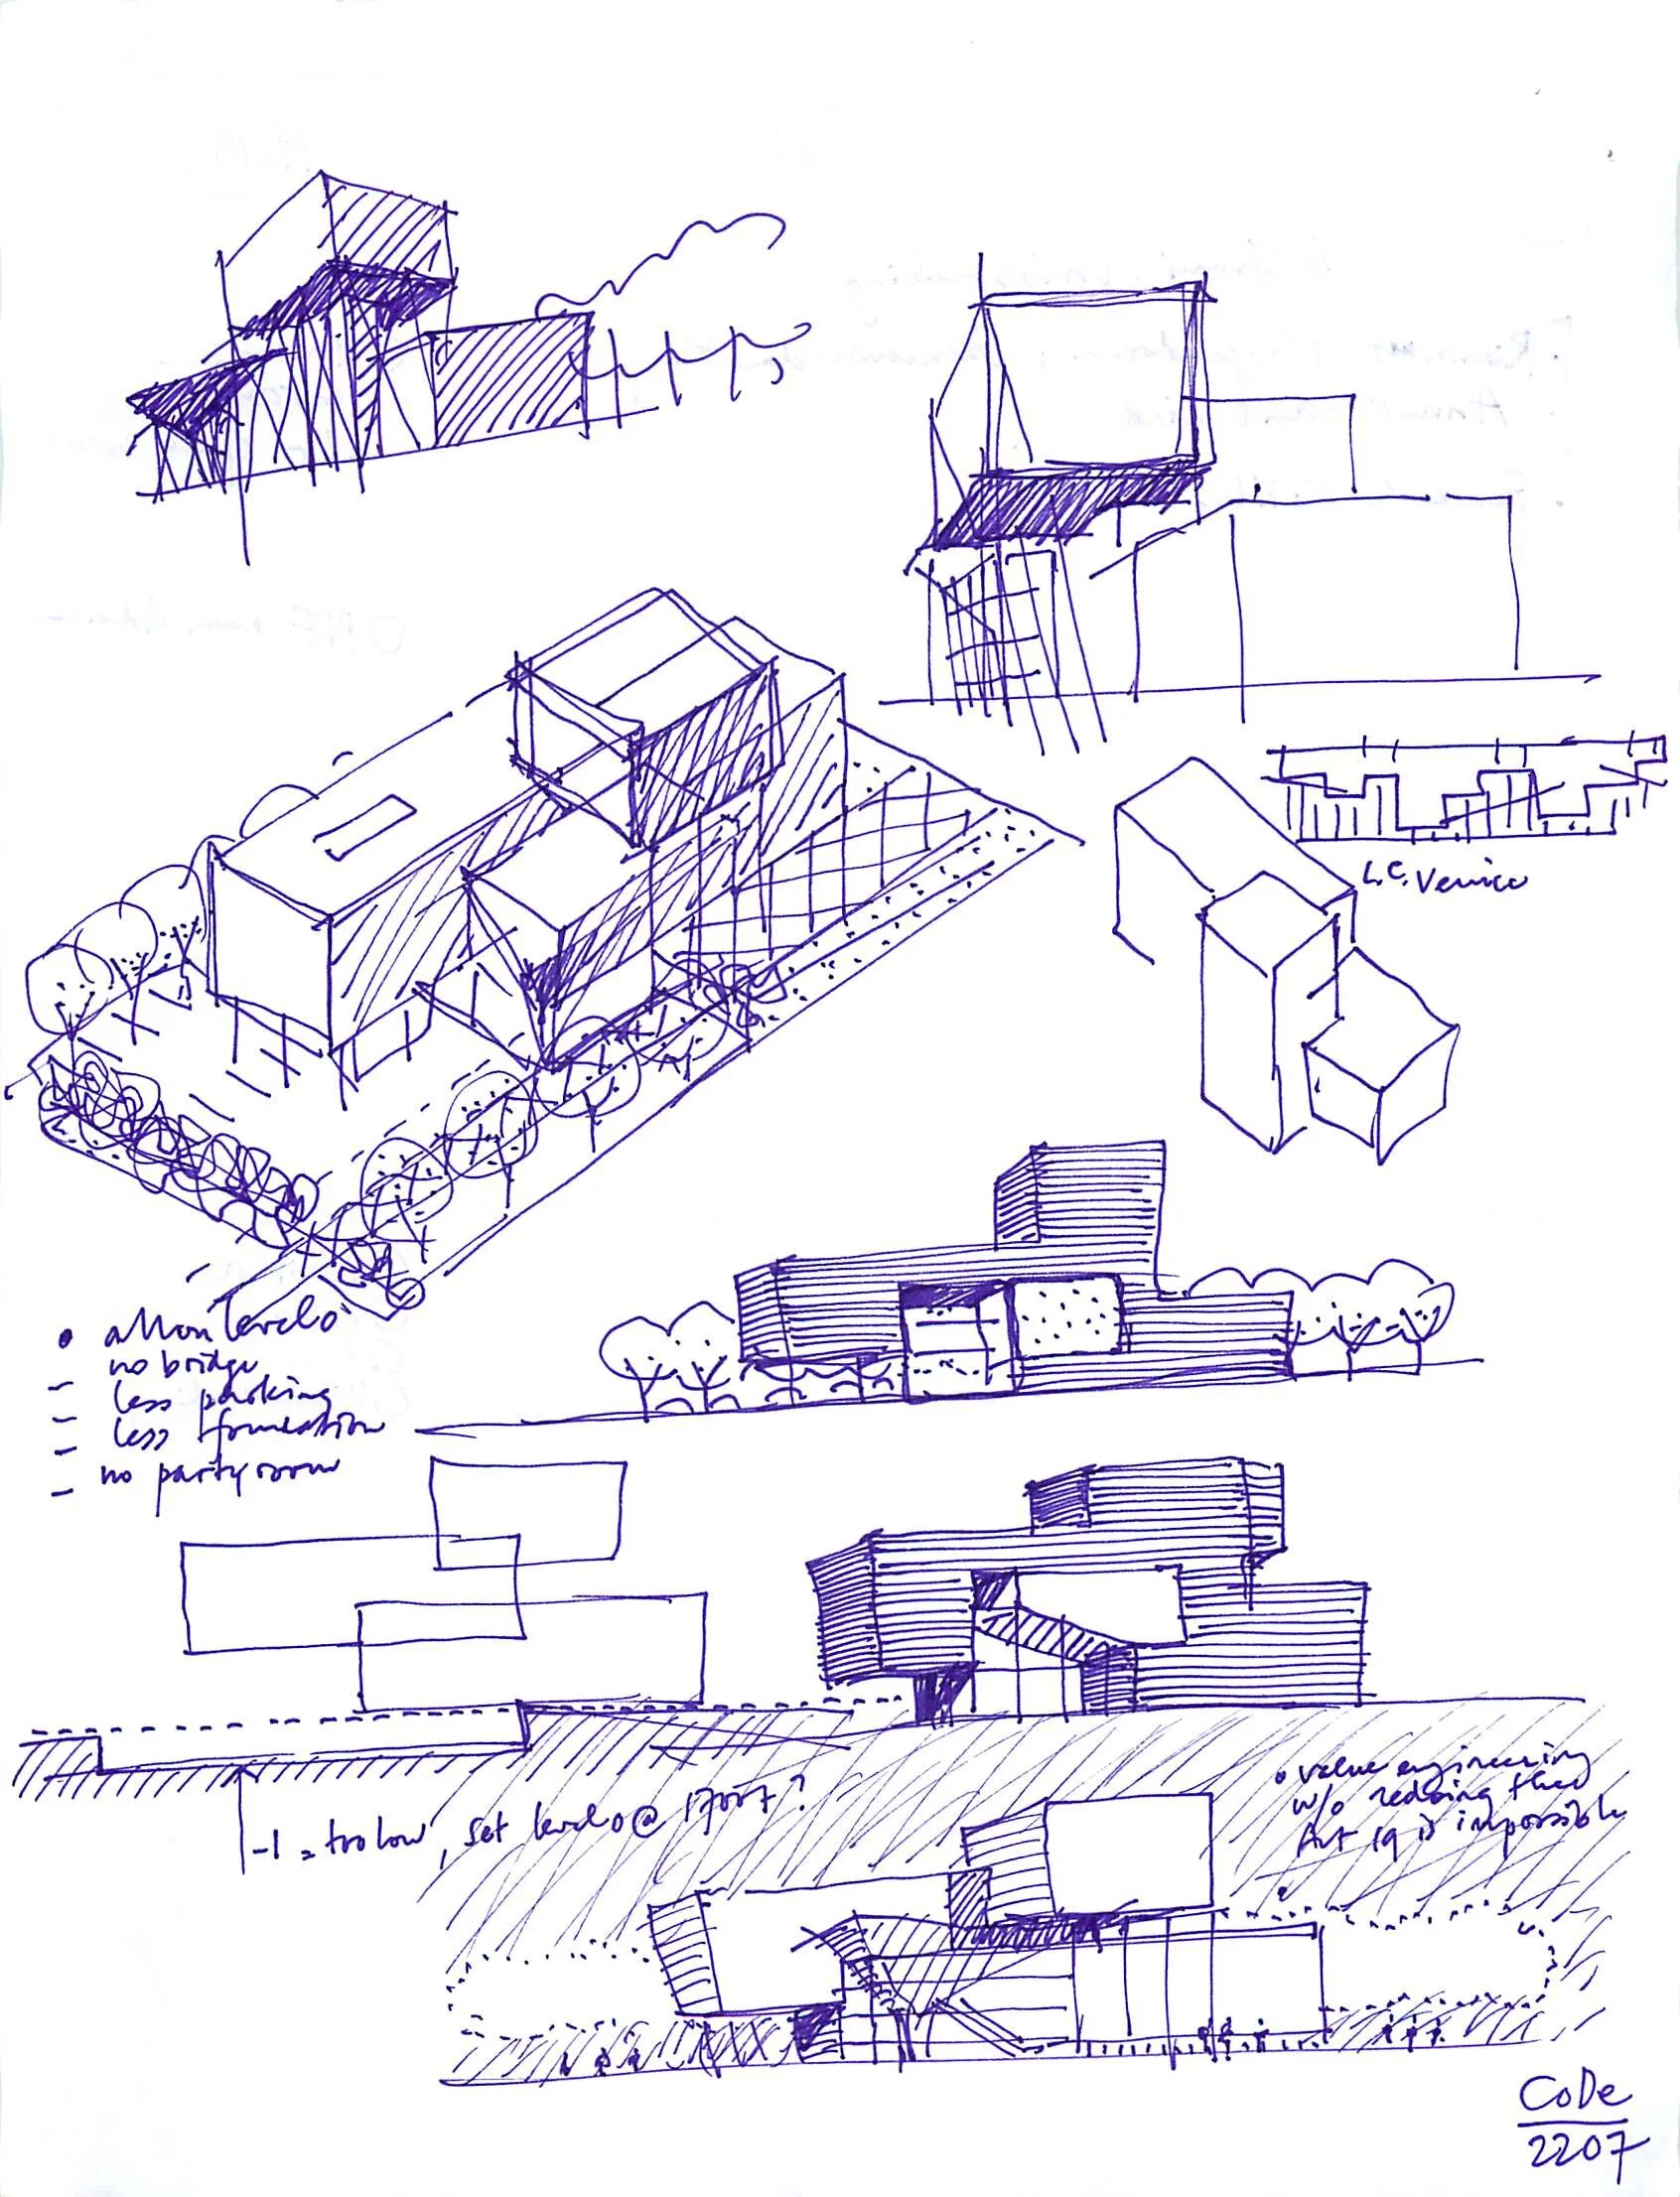 L.C. Venice
• all on level 0
– no bridge
– less parking
– less foundation
– no party room
-1 = too low, set level 0 @ 17007?
• value engineering
w/o reducing the
Art is impossible
CODe
2207